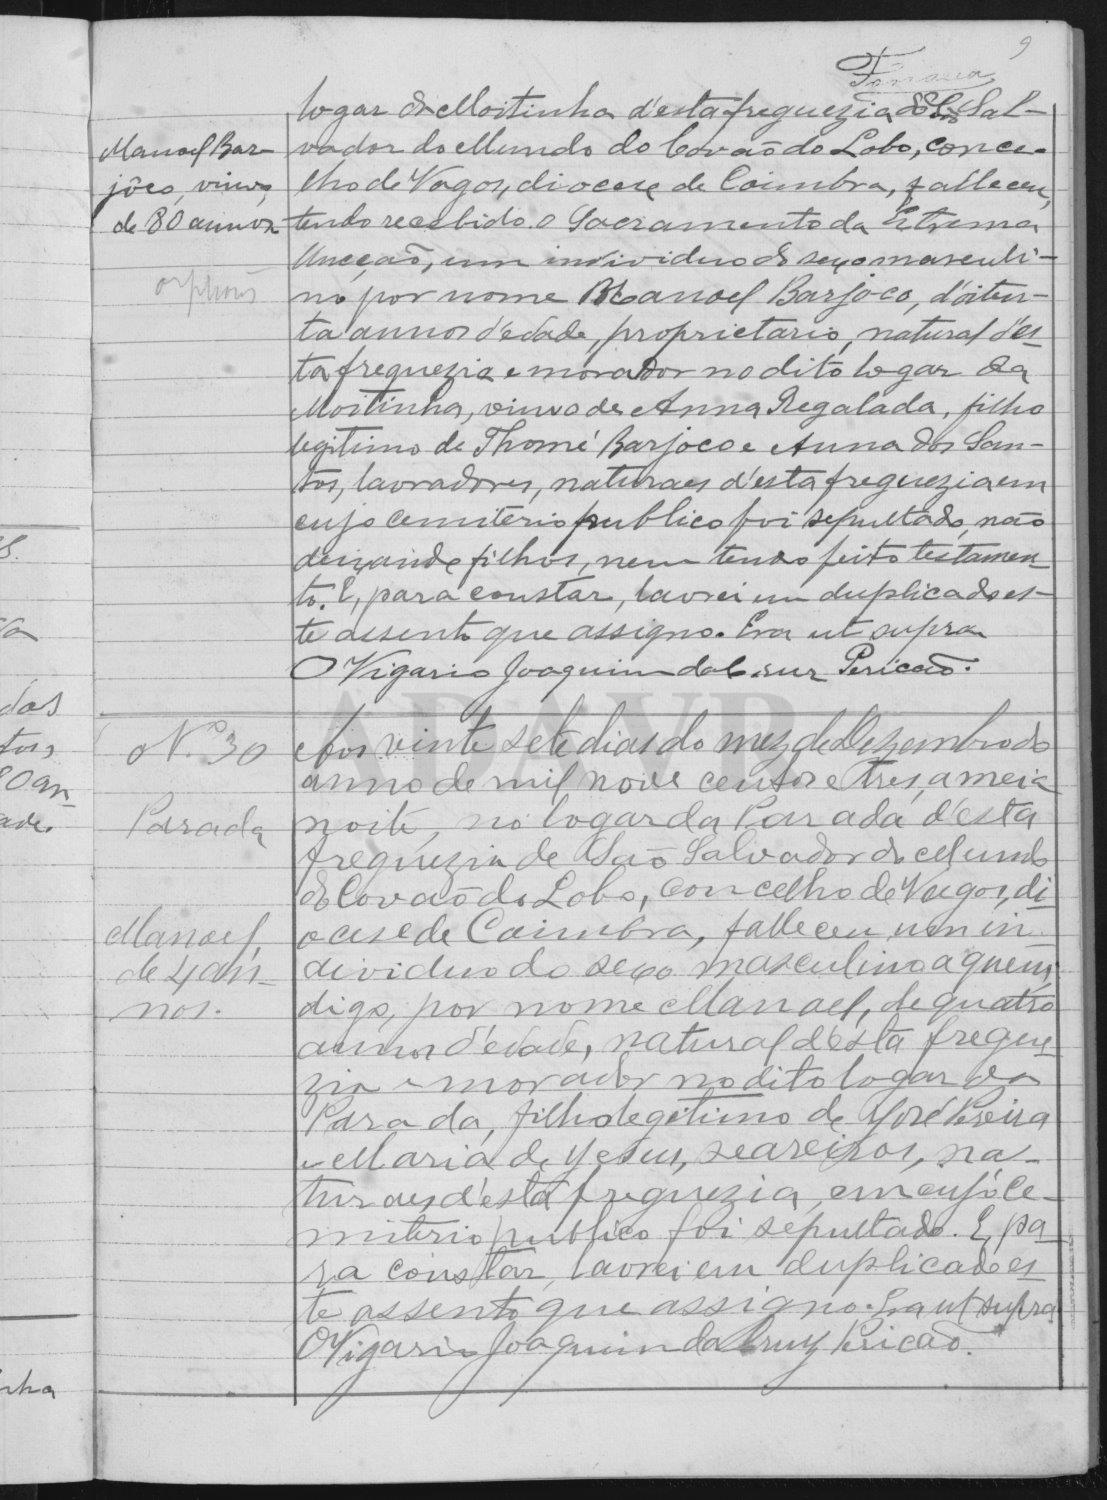 9
Fonseca
logar da Moitinha d'esta freguezia de S. Sal-
vador do Mundo do Covão do Lobo, conce-
lho de Vagos, diocese de Coimbra, falleceu,
tendo recebido o Sacramento da Extrema
Uncção, um individuo do sexo masculi-
no por nome Manoel Barjoco, d'oiten-
ta annos d'edade, proprietario, natural d'es-
ta freguezia e morador no dito logar da
Moitinha, viuvo de Anna Regalada, filho
legitimo de Thomé Barjoco e Anna dos San-
tos, lavradores, naturaes d'esta freguezia em
cujo cemiterio publico foi sepultado, não
deixando filhos, nem tendo feito testamen-
to. E, para constar, lavrei em duplicado es-
te assento que assigno. Era ut supra
O Vigario Joaquim da Cruz Pericão.
Manoel Bar-
jôco, viuvo,
de 80 annos
orphãos
ADAVR
N.º 30
Parada
Manoel,
de 4 an-
nos.
Aos vinte sete dias do mez de Dezembro do
anno de mil nove centos e tres, a meia
noite, no logar da Parada d'esta
freguezia de São Salvador do Mundo
do Covão do Lobo, concelho de Vagos, di-
ocese de Coimbra, falleceu um in-
dividuo do sexo masculino a quem,
digo, por nome Manoel, de quatro
annos d'edade, natural d'esta fregue-
zia e morador no dito logar da
Parada, filho legitimo de José Pereira
e Maria de Jesus, seareiros, na-
turaes d'esta freguezia em cujo ce-
miterio publico foi sepultado. E, pa-
ra constar, lavrei em duplicado es-
te assento que assigno. Era ut supra
O Vigario Joaquim da Cruz Pericão.